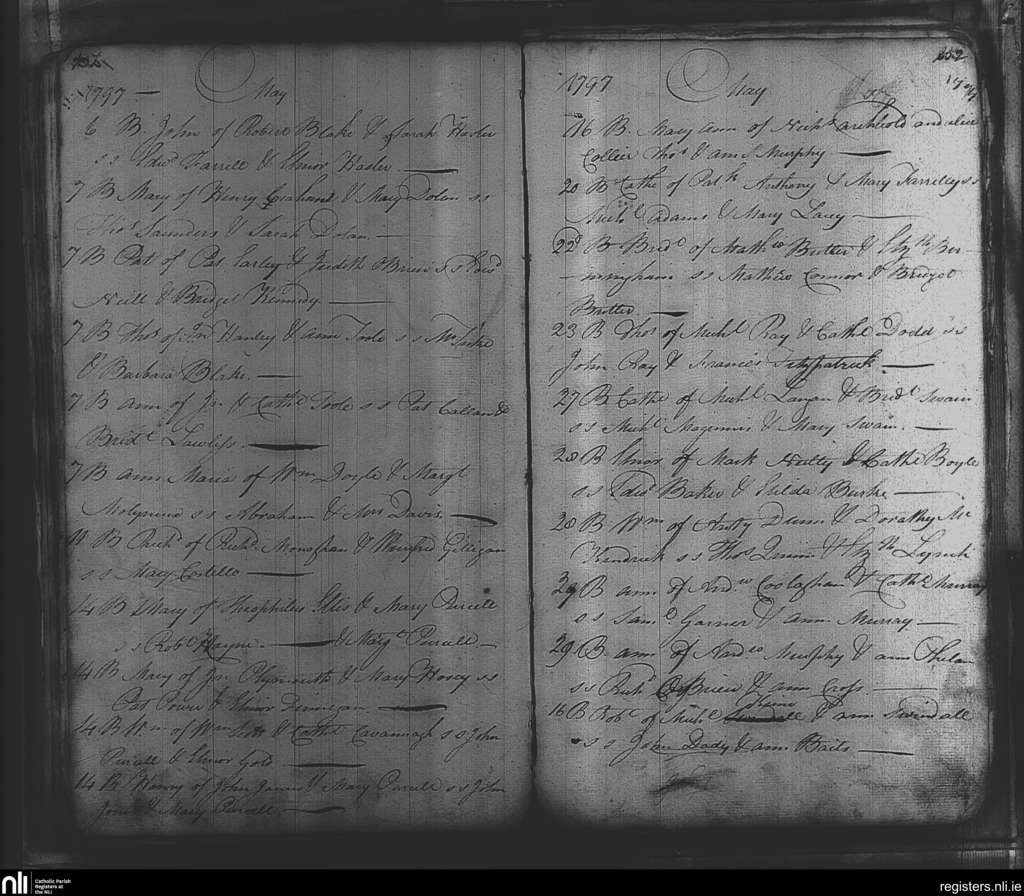 1797 — May
6 B John of Robert Blake & Sarah Hasler
s s Edwd Farrell & Elinor Hasler
7 B Mary of Henry Graham & Mary Dolan s s
Thos Saunders & Sarah Dolan
7 B Pat of Pat Earley & Judith OBrien s s
Neill & Bridget Kennedy
7 B Thos of Jon Hanley & Ann Toole s s Mr
& Barbara Blake
7 B Ann of Jn & Cathe Toole s s Pat Callan &
Bridt Lawless
7 B Ann Maria of Wm Doyle & Margt
Molyneux s s Abraham & Mrs Davis
11 B Richd of Richd Monaghan & Winifred Gilligan
s s Mary Costello
14 B Mary of Theophilus Ellis & Mary Purcell
s s Robt Hayne & Margt Purcell
14 B Mary of Jn Plymouth & Mary Hosey s s
Pat Power & Elinor
14 B Wm of Wm Scott & Cathe Cavannagh s s John
Purcell & Elinor Gold
14 B Henry of John & Mary Purcell s s John
& Mary Purcell
352
1797 May
16 B Mary Ann of Nichs Archbold and Alice
Collier Thos & Ann Murphy
20 B Cathe of Patk Anthony & Mary Farrelley s s
Michl Adams & Mary Lacey
22d B Bridt of Mathw Butler & Elizth Ber-
-mingham s s Mathew Connor & Bridget
Butler
23 B Thos of Michl Ray & Cathe Dodd s s
John Ray & Frances Fitzpatrick
27 B Cathe of Michl Langan & Bridt Swain
s s Michl & Mary Swain
28 B Elinor of Mark Neilly & Cathe Boyle
s s Edwd Baker & Burke
28 B Wm of Anty Dunn & Dorathy Mc
Kendrick s s Thos Quinn & Elizth Lynch
29 B Ann of Andw Coolaghan & Cathe Murray
s s Saml Garner & Ann Murray
29 B Ann of Murphy & Ann Phelan
s s Richd OBrien & Ann Cross
16 B Robt of Michl & Ann Swindall
s s John Dady & Ann Baits
nli
Catholic Parish
Registers at
the NLI
registers.nli.ie